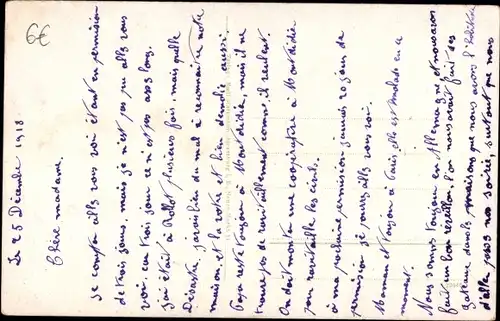 6€
Le 25 Décembre 1918.
Chère madame.
Je comptai allé vous voir étant en permission
de trois jours, mais je n'est pas pu allé vous
voir. car trois jour ce n'est pas assé long.
j'ai était à Rollot plusieurs fois, mais quelle
Désastre, j'ai eu bien du mal à reconnaitre notre
maison, et la votre et bien démolie aussi.
Papa reste toujour à Montdidier, mais il ne
trouve pas de ravitaillement comme il veulent.
On doit monté une coopérative à Montdidier
pour ravitaillé les civils.
à ma prochaine permission j'aurais 20 jours de
permission je pourrez allé vous voir.
Maman et toujour à Paris, elle est malade en ce
moment.
Nous sommes toujour en Allemagne et nous avons
fait un bon réveillon, l'on nous avait fait des
gateaux dans la maisons que nous avons l'habitude
d'allé passé nos soirée, surtout que nous